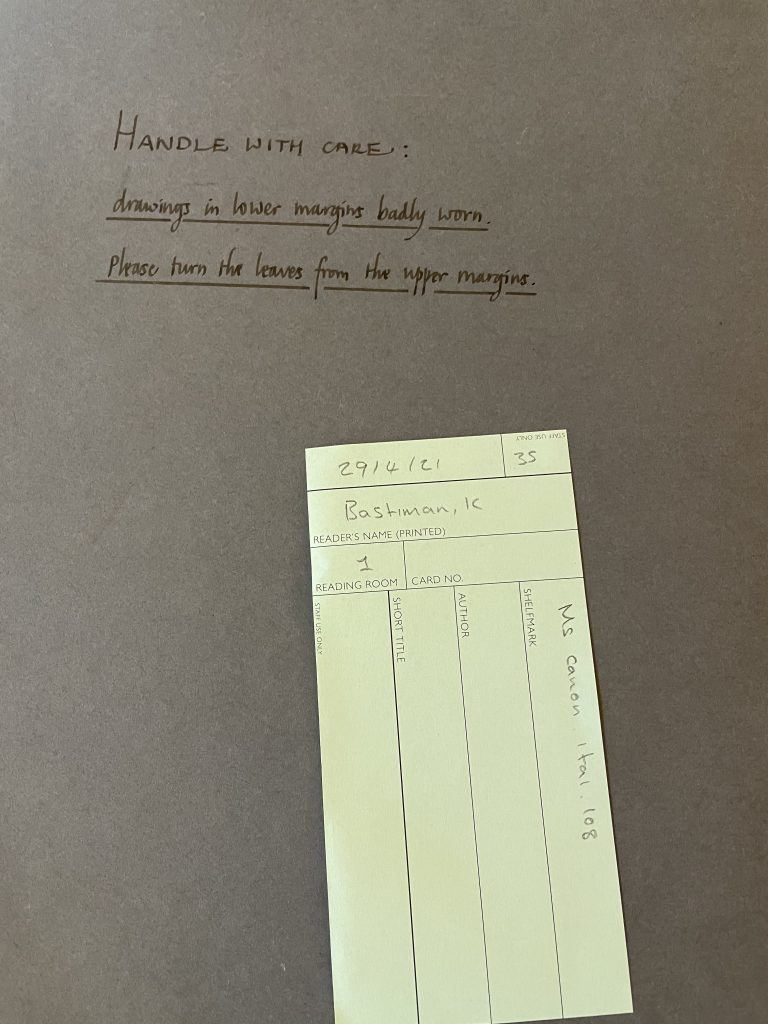 HANDLE WITH CARE:
drawings in lower margins badly worn.
Please turn the leaves from the upper margins.
STAFF USE ONLY
29/4/21
35
Bastiman, K
READER'S NAME (PRINTED)
1
READING ROOM
CARD NO.
STAFF USE ONLY
SHORT TITLE
AUTHOR
SHELFMARK
Ms Canon. ital. 108